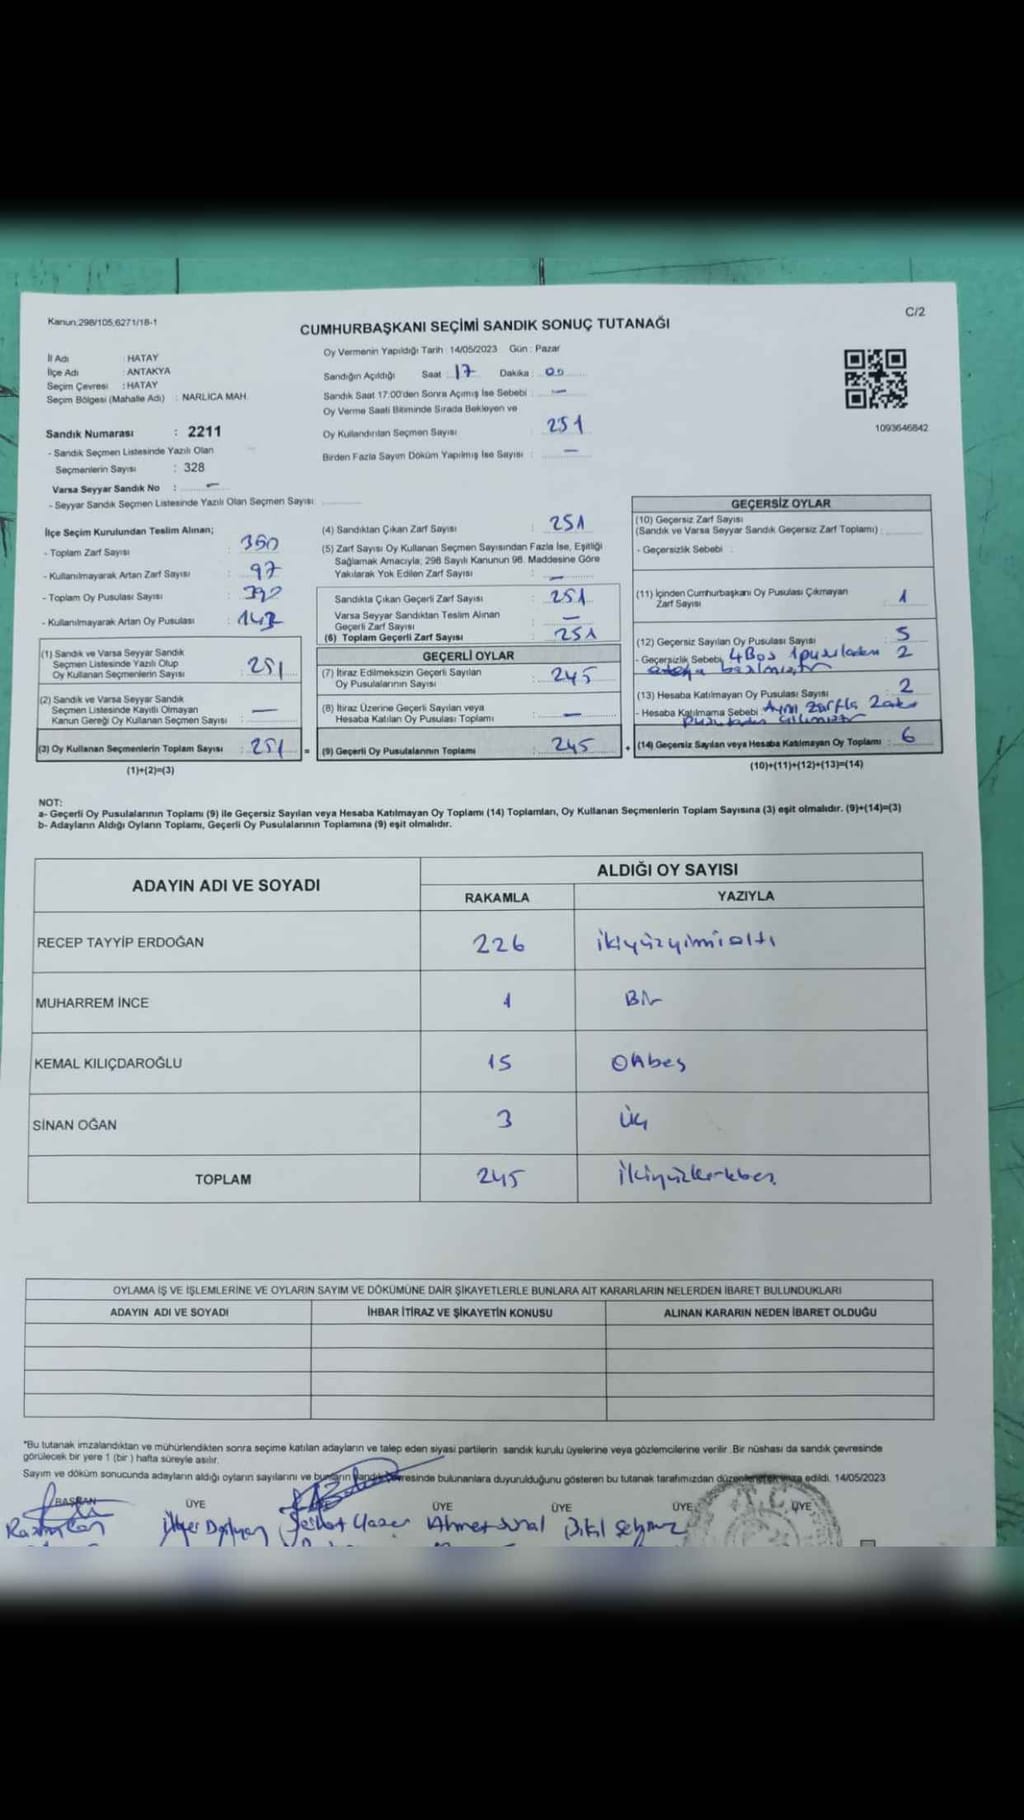 Kanun:298/105,6271/18-1
C/2
CUMHURBAŞKANI SEÇİMİ SANDIK SONUÇ TUTANAĞI
İl Adı : HATAY
İlçe Adı : ANTAKYA
Seçim Çevresi : HATAY
Seçim Bölgesi (Mahalle Adı) : NARLICA MAH.
Sandık Numarası : 2211
- Sandık Seçmen Listesinde Yazılı Olan
Seçmenlerin Sayısı : 328
Varsa Seyyar Sandık No : -
- Seyyar Sandık Seçmen Listesinde Yazılı Olan Seçmen Sayısı:
Oy Vermenin Yapıldığı Tarih : 14/05/2023 Gün : Pazar
Sandığın Açıldığı Saat : 17 Dakika : 00
Sandık Saat 17:00'den Sonra Açılmış İse Sebebi : -
Oy Verme Saati Bitiminde Sırada Bekleyen ve
Oy Kullandırılan Seçmen Sayısı : 251
Birden Fazla Sayım Döküm Yapılmış İse Sayısı : -
1093646842
İlçe Seçim Kurulundan Teslim Alınan;
- Toplam Zarf Sayısı : 350
- Kullanılmayarak Artan Zarf Sayısı : 97
- Toplam Oy Pusulası Sayısı :
- Kullanılmayarak Artan Oy Pusulası :
(1) Sandık ve Varsa Seyyar Sandık
Seçmen Listesinde Yazılı Olup
Oy Kullanan Seçmenlerin Sayısı : 251
(2) Sandık ve Varsa Seyyar Sandık
Seçmen Listesinde Kayıtlı Olmayan
Kanun Gereği Oy Kullanan Seçmen Sayısı : -
(3) Oy Kullanan Seçmenlerin Toplam Sayısı : 251 =
(1)+(2)=(3)
(4) Sandıktan Çıkan Zarf Sayısı : 251
(5) Zarf Sayısı Oy Kullanan Seçmen Sayısından Fazla İse, Eşitliği
Sağlamak Amacıyla; 298 Sayılı Kanunun 98. Maddesine Göre
Yakılarak Yok Edilen Zarf Sayısı : -
Sandıkta Çıkan Geçerli Zarf Sayısı : 251
Varsa Seyyar Sandıktan Teslim Alınan
Geçerli Zarf Sayısı : -
(6) Toplam Geçerli Zarf Sayısı : 251
GEÇERLİ OYLAR
(7) İtiraz Edilmeksizin Geçerli Sayılan
Oy Pusulalarının Sayısı : 245
(8) İtiraz Üzerine Geçerli Sayılan veya
Hesaba Katılan Oy Pusulası Toplamı : -
(9) Geçerli Oy Pusulalarının Toplamı : 245 +
GEÇERSİZ OYLAR
(10) Geçersiz Zarf Sayısı
(Sandık ve Varsa Seyyar Sandık Geçersiz Zarf Toplamı) :
- Geçersizlik Sebebi :
(11) İçinden Cumhurbaşkanı Oy Pusulası Çıkmayan
Zarf Sayısı : 1
(12) Geçersiz Sayılan Oy Pusulası Sayısı : 5
- Geçersizlik Sebebi: 4 Boş 1 pusuladan 2
(13) Hesaba Katılmayan Oy Pusulası Sayısı : 2
- Hesaba Katılmama Sebebi : Aynı zarfla 2 adet
(14) Geçersiz Sayılan veya Hesaba Katılmayan Oy Toplamı : 6
(10)+(11)+(12)+(13)=(14)
NOT:
a- Geçerli Oy Pusulalarının Toplamı (9) ile Geçersiz Sayılan veya Hesaba Katılmayan Oy Toplamı (14) Toplamları, Oy Kullanan Seçmenlerin Toplam Sayısına (3) eşit olmalıdır. (9)+(14)=(3)
b- Adayların Aldığı Oyların Toplamı, Geçerli Oy Pusulalarının Toplamına (9) eşit olmalıdır.
ADAYIN ADI VE SOYADI
ALDIĞI OY SAYISI
RAKAMLA YAZIYLA
RECEP TAYYİP ERDOĞAN 226 ikiyüzyimialtı
MUHARREM İNCE 1 Bir
KEMAL KILIÇDAROĞLU 15 Onbeş
SİNAN OĞAN 3 Üç
TOPLAM 245 ikiyüzkırkbeş
OYLAMA İŞ VE İŞLEMLERİNE VE OYLARIN SAYIM VE DÖKÜMÜNE DAİR ŞİKAYETLERLE BUNLARA AİT KARARLARIN NELERDEN İBARET BULUNDUKLARI
ADAYIN ADI VE SOYADI İHBAR İTİRAZ VE ŞİKAYETİN KONUSU ALINAN KARARIN NEDEN İBARET OLDUĞU
*Bu tutanak imzalandıktan ve mühürlendikten sonra seçime katılan adayların ve talep eden siyasi partilerin sandık kurulu üyelerine veya gözlemcilerine verilir .Bir nüshası da sandık çevresinde
görülecek bir yere 1 (bir ) hafta süreyle asılır.
Sayım ve döküm sonucunda adayların aldığı oyların sayılarını ve bunların sandık çevresinde bulunanlara duyurulduğunu gösteren bu tutanak tarafımızdan düzenlenerek imza edildi. 14/05/2023
BAŞKAN ÜYE ÜYE ÜYE ÜYE ÜYE
Ramazan İlker Serhat Ahmet